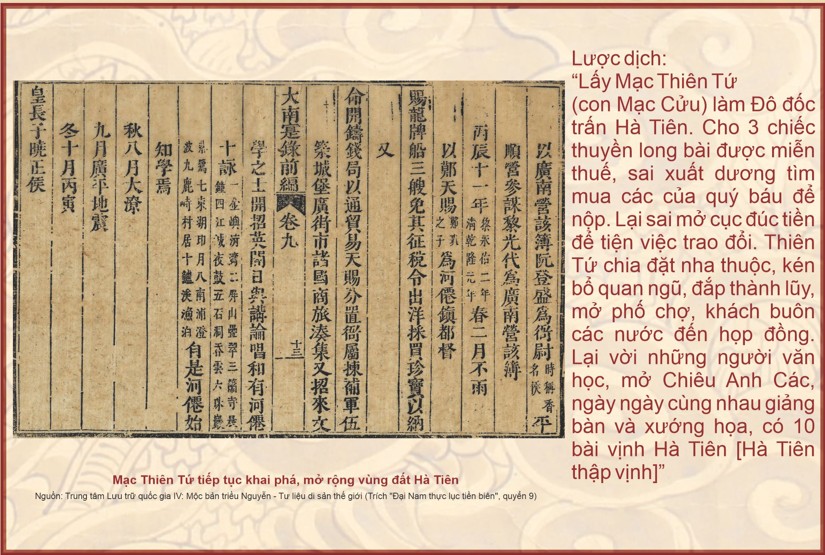 以廣南營該簿阮登盛為衙尉時稱香名侯平
順營參謀黎光代為廣南營該簿
丙辰十一年黎永佑二年清乾隆元年春二月不雨
以鄚天賜鄚玖之子為河僊鎮都督
賜龍牌船三艘免其征稅令出洋採買珍寶以納
又
命開鑄錢局以通貿易天賜分置衙屬揀補軍伍
築城堡廣街市諸國商旅湊集又招來文
大南寔錄前編 卷九 十三
學之士開招英閣日與講論唱和有河僊
十詠一金嶼攔濤二屏山疊翠三蕭寺晨鐘四江城夜鼓五石洞吞雲六珠巖落鷺七東湖印月八南浦澄波九鹿峙村居十鱸溪漁泊自是河僊始
知學焉
秋八月大潦
九月廣平地震
冬十月丙寅
皇長子曉正侯
Mạc Thiên Tứ tiếp tục khai phá, mở rộng vùng đất Hà Tiên
Nguồn: Trung tâm Lưu trữ quốc gia IV: Mộc bản triều Nguyễn - Tư liệu di sản thế giới (Trích "Đại Nam thực lục tiền biên", quyển 9)
Lược dịch:
“Lấy Mạc Thiên Tứ
(con Mạc Cửu) làm Đô đốc
trấn Hà Tiên. Cho 3 chiếc
thuyền long bài được miễn
thuế, sai xuất dương tìm
mua các của quý báu để
nộp. Lại sai mở cục đúc tiền
để tiện việc trao đổi. Thiên
Tứ chia đặt nha thuộc, kén
bổ quan ngũ, đắp thành lũy,
mở phố chợ, khách buôn
các nước đến họp đồng.
Lại vời những người văn
học, mở Chiêu Anh Các,
ngày ngày cùng nhau giảng
bàn và xướng họa, có 10
bài vịnh Hà Tiên [Hà Tiên
thập vịnh]”